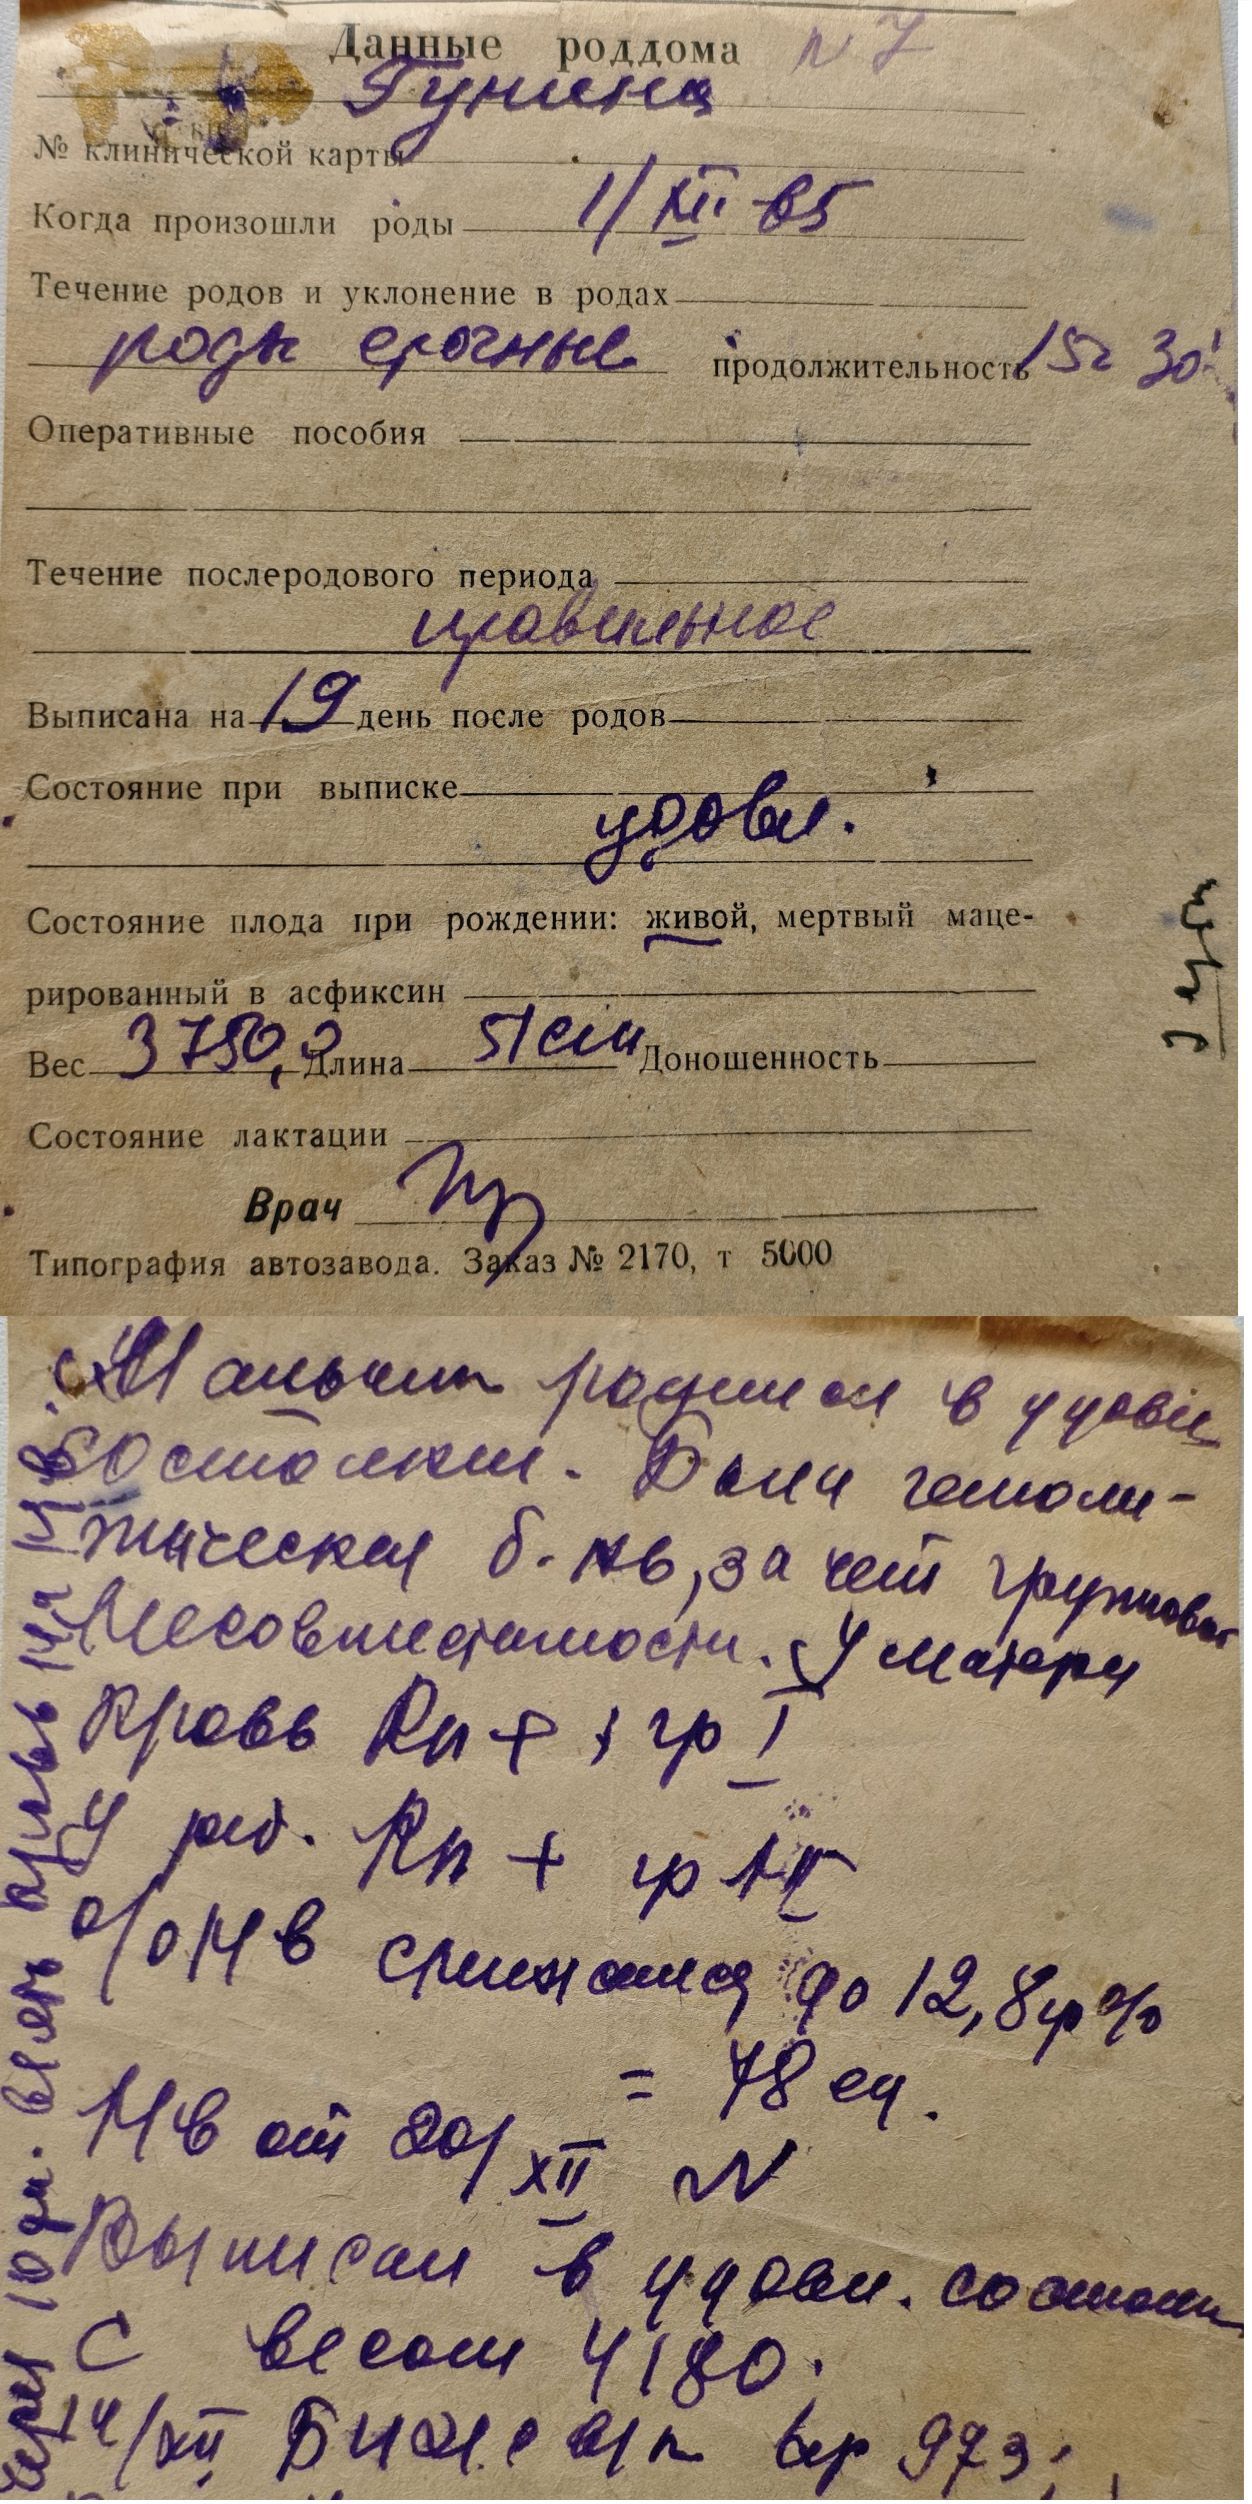 Данные роддома N 7
Гунина
№ клинической карты
Когда произошли роды 1/XII-65
Течение родов и уклонение в родах
роды срочные продолжительность 15ч 30'
Оперативные пособия
Течение послеродового периода
правильное
Выписана на 19 день после родов
Состояние при выписке
удовл.
Состояние плода при рождении: живой, мертвый маце-
рированный в асфиксин
Вес 3750,0 Длина 51 см Доношенность
Состояние лактации
Врач
Типография автозавода. Заказ № 2170, т 5000
Мальчик родился в удовл
состоянии. Была гемоли-
тическая б-нь, за чет групповой
несовместимости. У матери
кровь Rh + гр I
У реб. Rh + гр II
% Нв снижался до 12,8 гр%
= 78 ед.
Нв от 20/XII N
Выписан в удовл. состоянии
С весом 4180.
14/XII БЦЖ с 973
через 10 дн. взять кровь на Нв